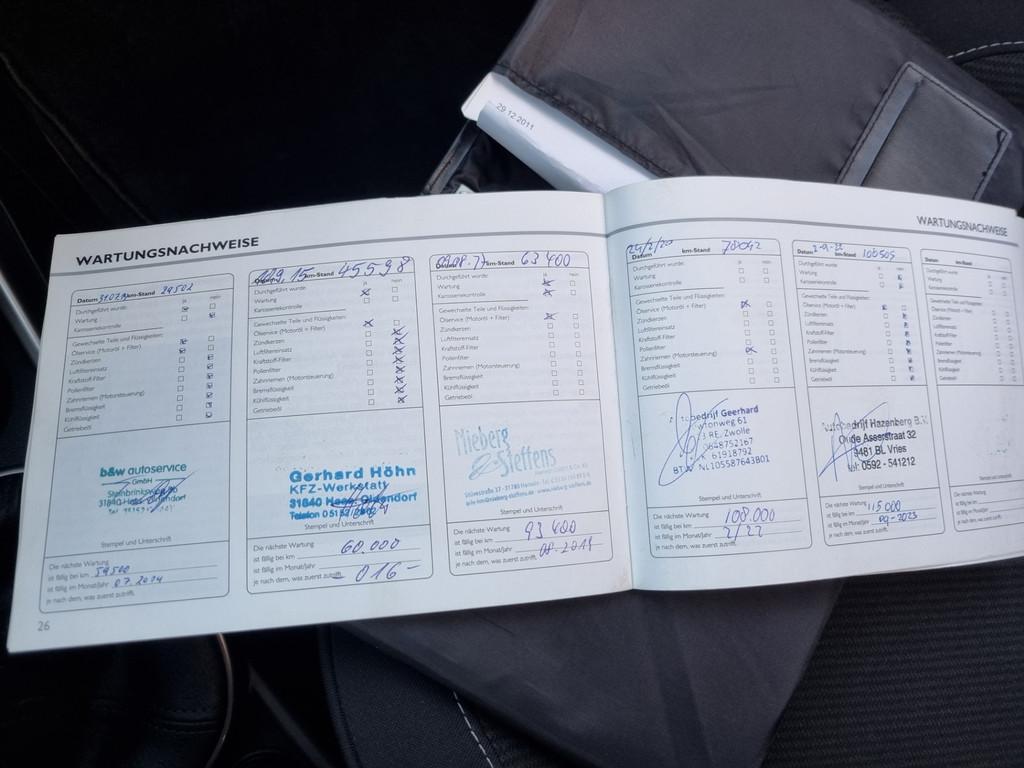 29.12.2011
WARTUNGSNACHWEISE
Datum km-Stand 29502
Durchgeführt wurde: ja nein
Wartung
Karosseriekontrolle
Gewechselte Teile und Flüssigkeiten:
Ölservice (Motoröl + Filter)
Zündkerzen
Luftfiltereinsatz
Kraftstoff-Filter
Pollenfilter
Zahnriemen (Motorsteuerung)
Bremsflüssigkeit
Kühlflüssigkeit
Getriebeöl
b&w autoservice
GmbH
Stempel und Unterschrift
Die nächste Wartung
ist fällig bei km 59500
ist fällig im Monat/Jahr 07.2014
je nach dem, was zuerst zutrifft.
26
km-Stand 45598
Durchgeführt wurde: ja nein
Wartung
Karosseriekontrolle
Gewechselte Teile und Flüssigkeiten:
Ölservice (Motoröl + Filter)
Zündkerzen
Luftfiltereinsatz
Kraftstoff-Filter
Pollenfilter
Zahnriemen (Motorsteuerung)
Bremsflüssigkeit
Kühlflüssigkeit
Getriebeöl
Gerhard Höhn
KFZ-Werkstatt
31840 Hess. Oldendorf
Telefon
Stempel und Unterschrift
Die nächste Wartung
ist fällig bei km 60.000
ist fällig im Monat/Jahr
je nach dem, was zuerst zutrifft. - 016 -
km-Stand 63400
Durchgeführt wurde: ja nein
Wartung
Karosseriekontrolle
Gewechselte Teile und Flüssigkeiten:
Ölservice (Motoröl + Filter)
Zündkerzen
Luftfiltereinsatz
Kraftstoff-Filter
Pollenfilter
Zahnriemen (Motorsteuerung)
Bremsflüssigkeit
Kühlflüssigkeit
Getriebeöl
Nieberg
& Steffens
Stempel und Unterschrift
Die nächste Wartung
ist fällig bei km 93400
ist fällig im Monat/Jahr 08.2019
je nach dem, was zuerst zutrifft.
WARTUNGSNACHWEISE
24/2/20
Datum km-Stand 78042
Durchgeführt wurde: ja nein
Wartung
Karosseriekontrolle
Gewechselte Teile und Flüssigkeiten:
Ölservice (Motoröl + Filter)
Zündkerzen
Luftfiltereinsatz
Kraftstoff-Filter
Pollenfilter
Zahnriemen (Motorsteuerung)
Bremsflüssigkeit
Kühlflüssigkeit
Getriebeöl
Geerhard
61
RE, Zwolle
0648752167
61918792
NL105587643B01
Stempel und Unterschrift
Die nächste Wartung
ist fällig bei km 108.000
ist fällig im Monat/Jahr 2/22
je nach dem, was zuerst zutrifft.
Datum 2-9-22 km-Stand 100505
Durchgeführt wurde: ja nein
Wartung
Karosseriekontrolle
Gewechselte Teile und Flüssigkeiten:
Ölservice (Motoröl + Filter)
Zündkerzen
Luftfiltereinsatz
Kraftstoff-Filter
Pollenfilter
Zahnriemen (Motorsteuerung)
Bremsflüssigkeit
Kühlflüssigkeit
Getriebeöl
Autobedrijf Hazenberg B.V.
Oude Asserstraat 32
9481 BL Vries
tel: 0592 - 541212
Stempel und Unterschrift
Die nächste Wartung
ist fällig bei km 115000
ist fällig im Monat/Jahr 09-2023
je nach dem, was zuerst zutrifft.
Datum km-Stand
Durchgeführt wurde:
Wartung
Karosseriekontrolle
Gewechselte Teile und Flüssigkeiten:
Ölservice (Motoröl + Filter)
Zündkerzen
Luftfiltereinsatz
Kraftstoff-Filter
Pollenfilter
Zahnriemen (Motorsteuerung)
Bremsflüssigkeit
Kühlflüssigkeit
Getriebeöl
Stempel und Unterschrift
Die nächste Wartung
ist fällig bei km
ist fällig im Monat/Jahr
je nach dem, was zuerst zutrifft.